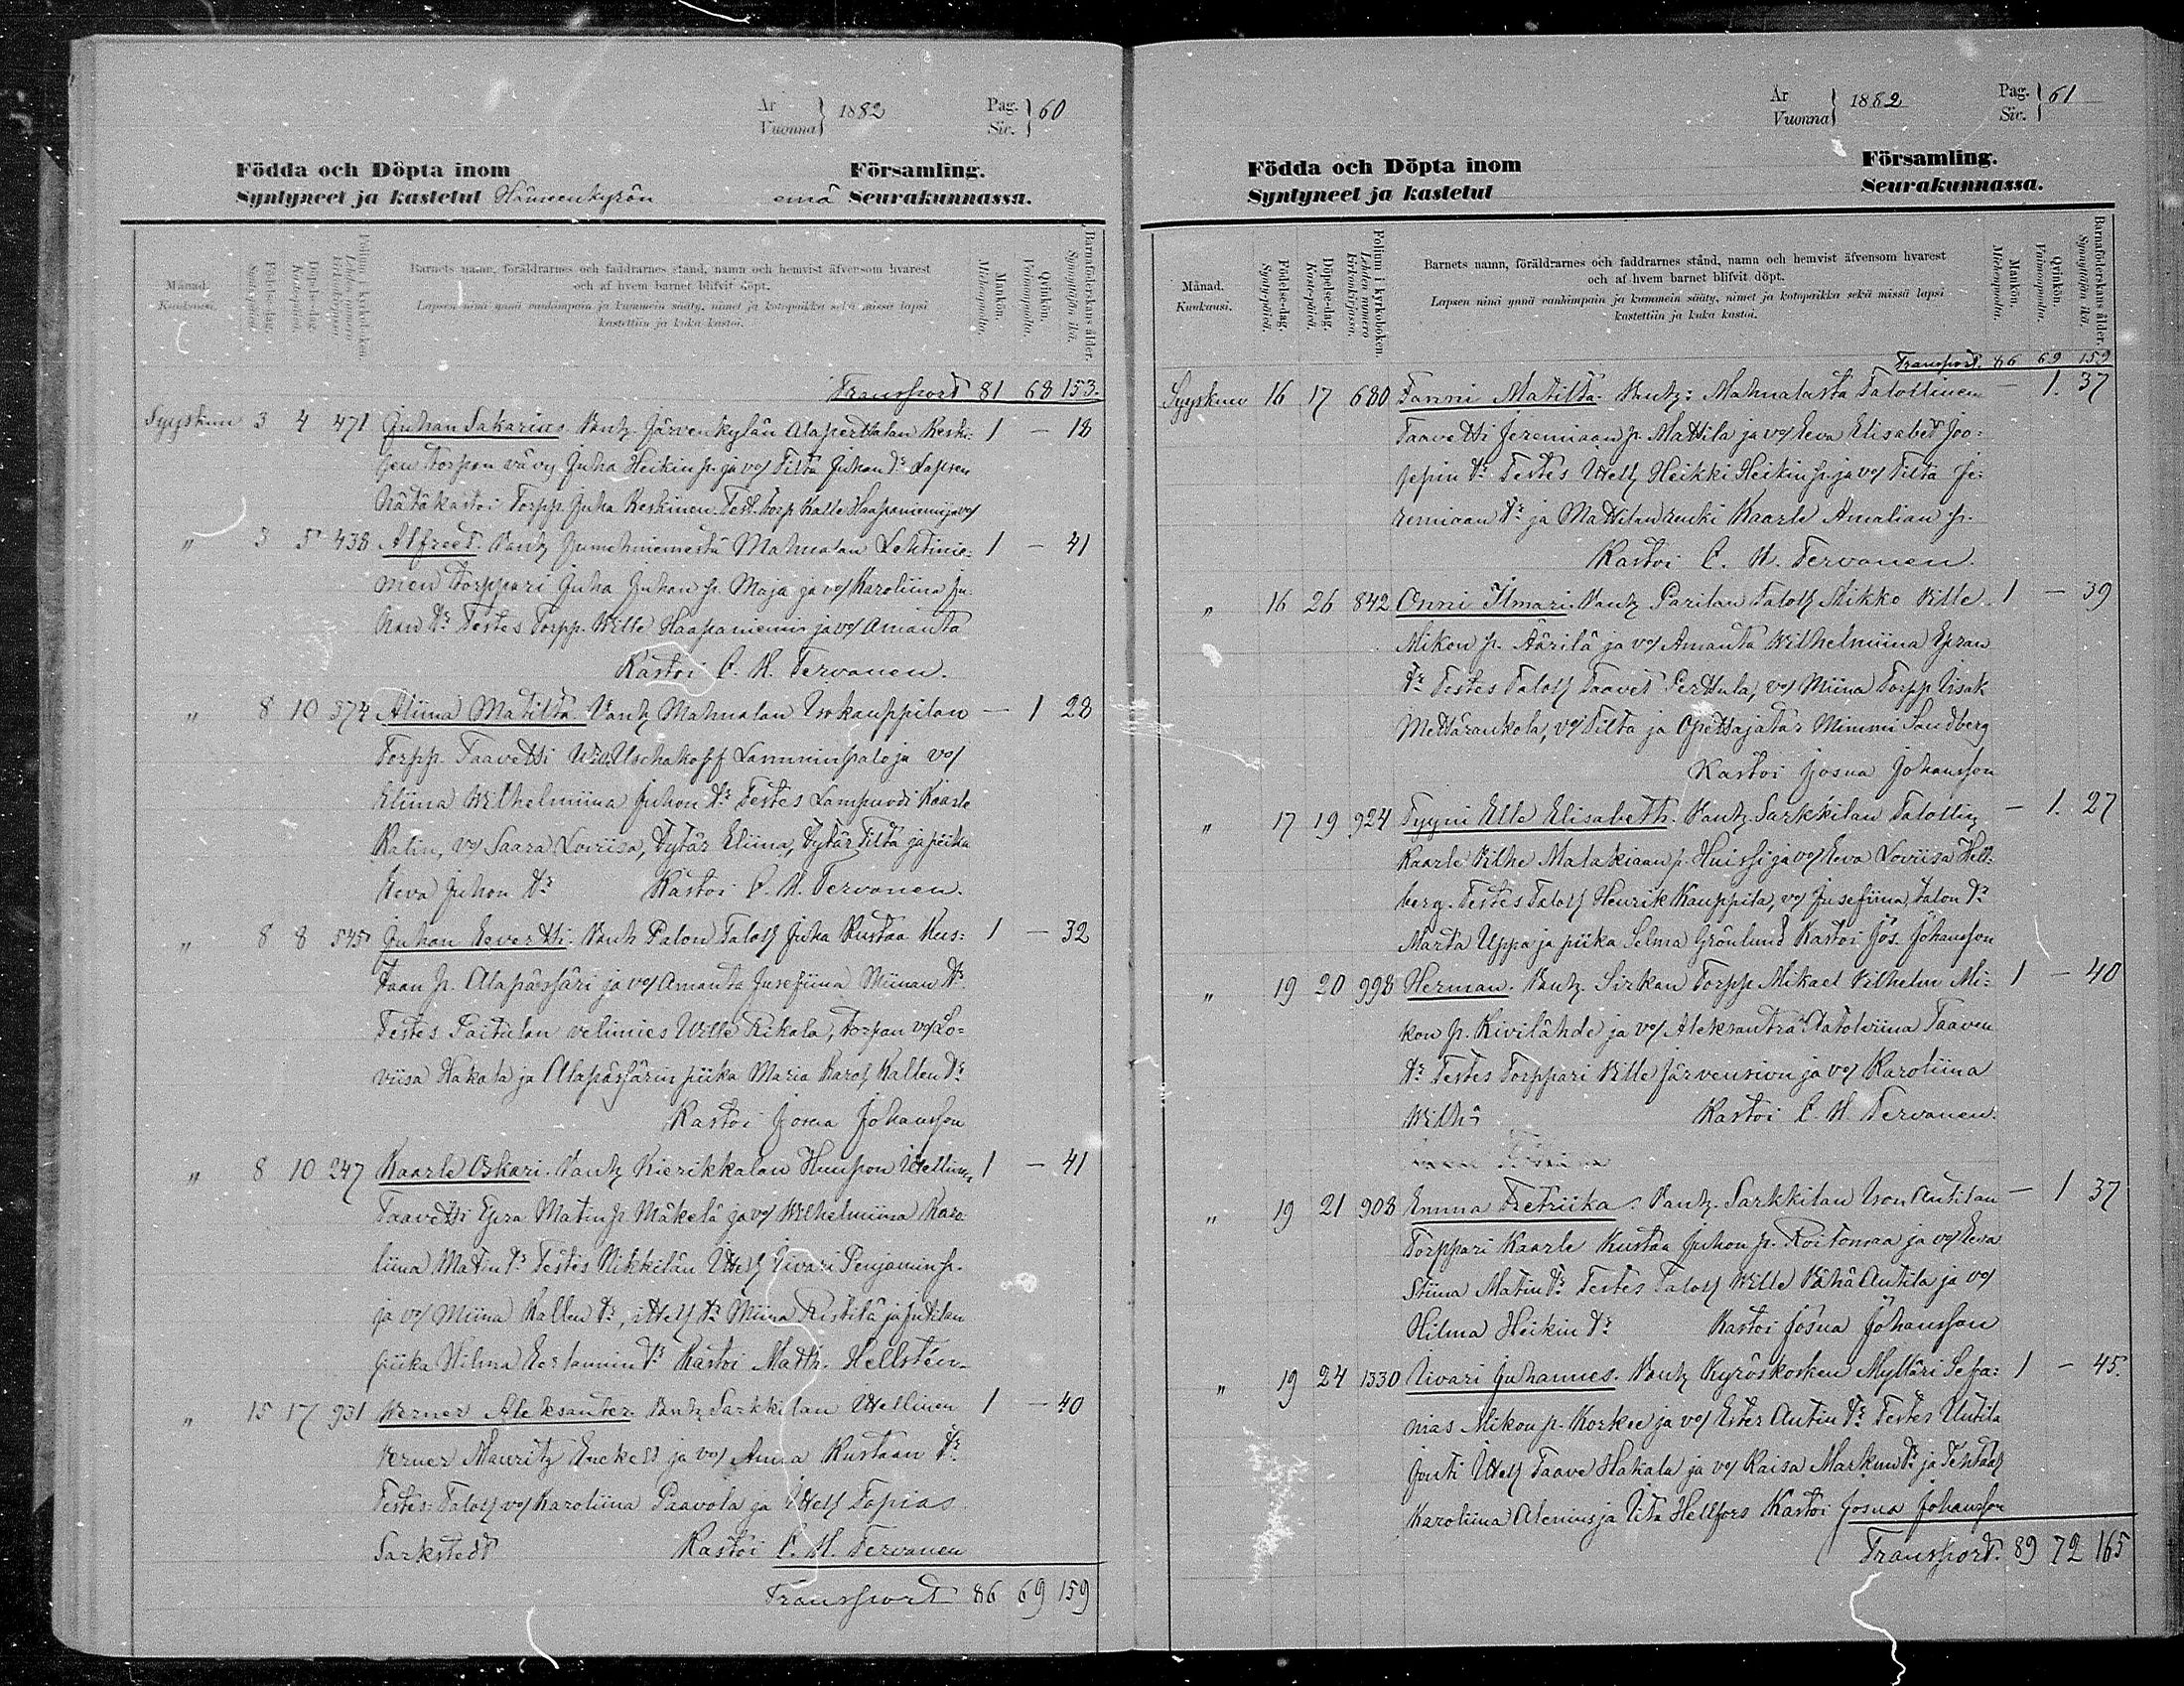 År
Vuonna } 1882
Pag.
Siv. } 60
Födda och Döpta inom Församling.
Syntyneet ja kastetut Hämeenkyrön emä Seurakunnassa.
Månad.
Kuukausi.
Födelse-dag.
Syntypäivä.
Döpelse-dag.
Kastepäivä.
Folium i kyrkoboken.
Lehden numero
Kirkonkirjassa.
Barnets namn, föräldrarnes och faddrarnes stånd, namn och hemvist äfvensom hvarest
och af hvem barnet blifvit döpt.
Lapsen nimi ynnä vanhimpain ja kummein sääty, nimet ja kotopaikka sekä missä lapsi
kastettiin ja kuka kastoi.
Mankön.
Miehenpuolia.
Qvinkön.
Vaimonpuolia.
Barnaföderskans ålder.
Synnyttäjän ikä.
Transport 81 68 153.
Syyskuu 3 4 471 Juhan Sakarius. Vanh. Järvenkylän Alaperttalan Keski- 1 — 18
sen torpan vävy Juha Heikin p. ja vo/ Tilta Juhan tr. Lapsen
Hätäkastoi Torpp. Juha Keskinen. Test. torp Kalle Haapaniemi ja vo/
" 3 5 438 Alfreet. Vanh Mahnalan Lehtinie- 1 — 41
men torppari Juha Juhan p. Maja ja vo/ Karoliina Ju-
han tr. Testes Torpp. Wille Haapaniemi ja vo/ Amanta
Kastoi C. H. Tervonen.
" 8 10 574 Aliina Matilta. Vanh Mahnalan Isokauppilan — 1 28
Torpp. Taavetti Uschakoff Lamminpalo ja vo/
Eliina Wilhelmiina Juhon tr. Testes Lampuodi Kaarle
Ratin, vo/ Saara Loviisa, tytär Eliina, tytär Tilta ja piika
Eeva Juhon tr. Kastoi C. H. Tervonen.
" 8 8 545 Juhan Evertti. Vanh Palon Talol/ Juha Kustaa Kus- 1 — 32
taan p. Alapässäri ja vo/ Amanta Jusefiina Miinan tr.
Testes Paitulan velimies Wille Eikala, torpan vo/ Lo-
viisa Hakala ja Alapässärin piika Maria Karol Kallen tr.
Kastoi Josua Johansson
" 8 10 247 Kaarle Oskari. Vanh Kierikkalan Huupon Ittellinen 1 — 41
Taavetti Epra Matin p. Mäkelä ja vo/ Wilhelmiina Karo-
liina Matin tr. Testes Nikkilän Ittell Iivari Penjamin p.
ja vo/ Miina Kallen tr., ittell tr. Miina Ristilä ja Jutilan
piika Hilma Kastoi Matth. Hellstén.
" 15 17 931 Verner Aleksanter. Vanh Sarkkilan Ittellinen 1 — 40
Verner Mauritz Enckell ja vo/ Anna Kustaan tr.
Testes: Talol/ vo/ Karoliina Paavola ja Ittell Topias
Sarkstedt Kastoi C. H. Tervonen
Transport 86 69 159
År
Vuonna } 1882
Pag.
Siv. } 61
Födda och Döpta inom Församling.
Syntyneet ja kastetut Seurakunnassa.
Månad.
Kuukausi.
Födelse-dag.
Syntypäivä.
Döpelse-dag.
Kastepäivä.
Folium i kyrkoboken.
Lehden numero
Kirkonkirjassa.
Barnets namn, föräldrarnes och faddrarnes stånd, namn och hemvist äfvensom hvarest
och af hvem barnet blifvit döpt.
Lapsen nimi ynnä vanhimpain ja kummein sääty, nimet ja kotopaikka sekä missä lapsi
kastettiin ja kuka kastoi.
Mankön.
Miehenpuolia.
Qvinkön.
Vaimonpuolia.
Barnaföderskans ålder.
Synnyttäjän ikä.
Transport. 86 69 159
Syyskuu 16 17 680 Fanni Matilta. Vanh: Mahnalasta Talollinen — 1. 37
Taavetti Jeremiaan p. Mattila ja vo/ Eeva Elisabet Joo-
seppin tr. Testes Ittell Heikki Heikin p. ja vo/ Tilta Je-
remiaan tr. ja Mattilan renki Kaarle Amalian p.
Kastoi C. H. Tervonen.
" 16 26 842 Onni Ilmari. Vanh Parilan Talol/ Mikko Ville 1 — 39
Mikon p. Äärilä ja vo/ Amanta Wilhelmiina Epran
tr. Testes Talol/ Taavet Perttula, vo/ Miina Torpp Iisak
Mettäränkola, vo/ Tilta ja Opettajatar Mimmi Sandberg
Kastoi Josua Johansson
" 17 19 924 Tyyni Elle Elisabeth. Vanh. Sarkkilan Talollin — 1. 27
Kaarle Vilhe Malakiaan p. Huissi ja vo/ Eeva Loviisa Hell-
berg. Testes Talol/ Henrik Kauppila, vo/ Jusefiina, talon tr.
Marta Uppa ja piika Selma Grönlund Kastoi Jos. Johansson
" 19 20 998 Herman. Vanh. Sirkan Torpp Mikael Vilhelm Mi- 1 — 40
kon p. Kivilähde ja vo/ Aleksantra Taaven
tr. Testes Torppari Ville Järvensivu ja vo/ Karoliina
Kastoi C. H. Tervonen.
" 19 21 908 Emma Fetriika. Vanh. Sarkkilan Ison Antilan — 1 37
Torppari Kaarle Kustaa Juhon p. Koitomaa ja vo/ Eeva
Stiina Matin tr. Testes Talol/ Wille Vähä Antila ja vo/
Hilma Heikin tr. Kastoi Josua Johansson
" 19 24 1330 Iivari Juhannes. Vanh Kyröskosken Mylläri Sefa- 1 — 45.
nias Mikon p. Korkee ja vo/ Ester Antin tr. Testes Untila
Ittell Taave Hakala ja vo/ Kaisa Markun tr. ja
Karoliina Alenius ja Iita Hellfors Kastoi Josua Johansson
Transport. 89 72 165